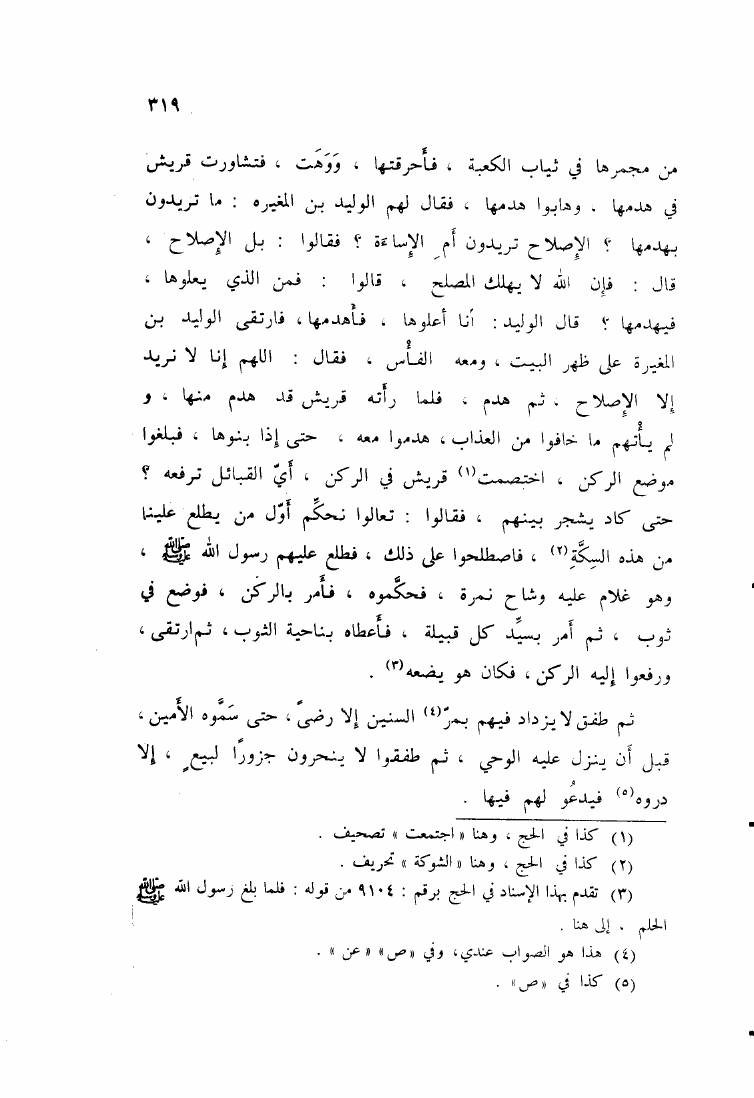 ٣١٩
من مجمرها في ثياب الكعبة ، فأَحرقتها ، وَوَهَت ، فتشاورت قريش
في هدمها . وهابوا هدمها ، فقال لهم الوليد بن المغيره : ما تريدون
بهدمها ؟ الإصلاح تريدون أمِ الإساءة ؟ فقالوا : بل الإصلاح ،
قال : فإن الله لا يهلك المصلح ، قالوا : فمن الذي يعلوها ،
فيهدمها ؟ قال الوليد : أنا أعلوها ، فأهدمها ، فارتقى الوليد بن
المغيرة على ظهر البيت ، ومعه الفأْس ، فقال : اللهم إنا لا نريد
إلا الإصلاح . ثم هدم ، فلما رأَته قريش قد هدم منها ، و
لم يأْتهم ما خافوا من العذاب ، هدموا معه ، حتى إذا بنوها ، فبلغوا
موضع الركن ، اختصمت(١) قريش في الركن ، أَيّ القبائل ترفعه ؟
حتى كاد يشجر بينهم ، فقالوا : تعالوا نحكِّم أوّل من يطلع علينا
من هذه السِكَّةِ(٢) ، فاصطلحوا على ذلك ، فطلع عليهم رسول الله ﷺ ،
وهو غلام عليه وشاح نمرة ، فحكَّموه ، فأَمر بالركن ، فوضع في
ثوب ، ثم أمر بسيِّد كل قبيلة ، فأَعطاه بناحية الثوب ، ثم ارتقى ،
ورفعوا إليه الركن ، فكان هو يضعه(٣) .
ثم طفق لا يزداد فيهم بمرّ(٤) السنين إلا رضىً ، حتى سَمَّوه الأَمين ،
قبل أن ينزل عليه الوحي ، ثم طفقوا لا ينحرون جزورًا لبيعٍ ، إلا
دروه(٥) فيدعُو لهم فيها .
(١) كذا في الحج ، وهنا « اجتمعت » تصحيف .
(٢) كذا في الحج ، وهنا « الشوكة » تحريف .
(٣) تقدم بهذا الإسناد في الحج برقم : ٩١٠٤ من قوله : فلما بلغ رسول الله ﷺ
الحلم . إلى هنا .
(٤) هذا هو الصواب عندي، وفي « ص » « عن » .
(٥) كذا في « ص » .